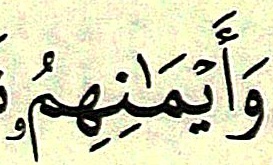 وَأَيْمَٰنِهِمُۥ